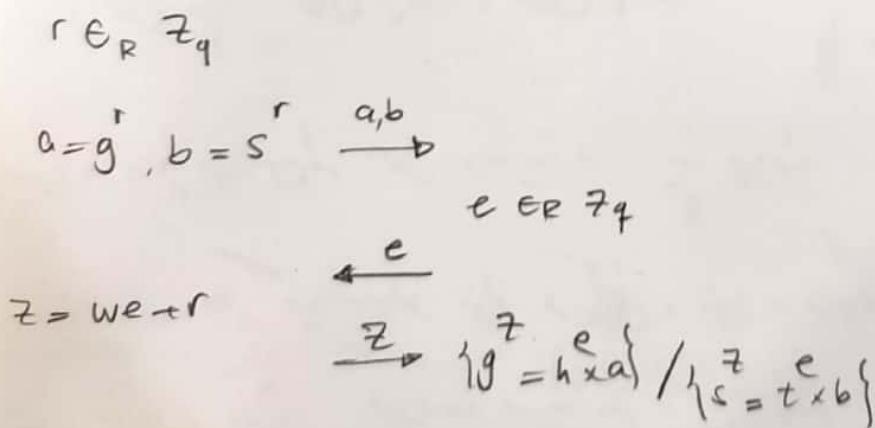 r ∈R Zq
a = g^r , b = s^r a,b →
e ∈R Zq
← e
z = we + r
z → {g^z = h^e × a} / {s^z = t^e × b}